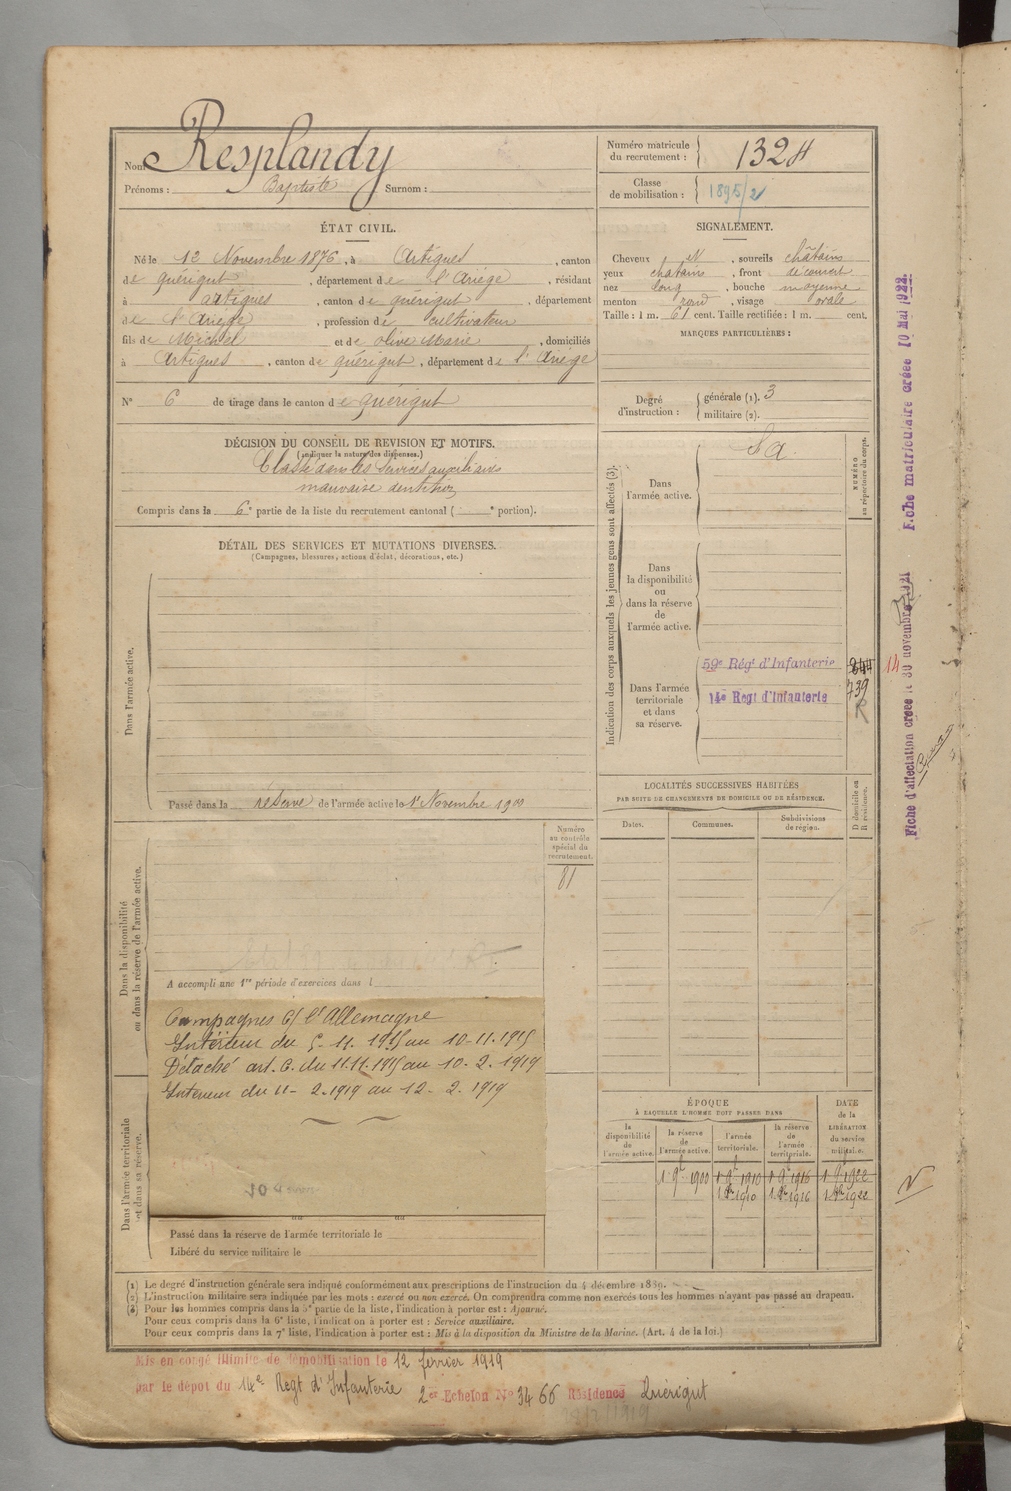 Nom Resplandy
Prénoms : Baptiste Surnom :
Numéro matricule du recrutement : 1324
Classe de mobilisation : 1895/2
ÉTAT CIVIL.
Né le 12 Novembre 1876, à Artigues, canton
de Quérigut, département de l'Ariège, résidant
à artigues, canton de quérigut, département
de l'Ariège, profession de cultivateur
fils de Michel et de olive Marie, domiciliés
à Artigues, canton de quérigut, département de l'Ariège
N° 6 de tirage dans le canton de Quérigut
SIGNALEMENT.
Cheveux N, sourcils châtains
yeux chatains, front découvert
nez long, bouche moyenne
menton rond, visage ovale
Taille : 1 m. 61 cent. Taille rectifiée : 1 m. cent.
MARQUES PARTICULIÈRES :
Degré d'instruction : générale (1). 3
militaire (2).
DÉCISION DU CONSEIL DE REVISION ET MOTIFS.
(indiquer la nature des dispenses.)
Classé dans les Services auxiliaires
mauvaise dentition
Compris dans la 6e partie de la liste du recrutement cantonal ( e portion).
DÉTAIL DES SERVICES ET MUTATIONS DIVERSES.
(Campagnes, blessures, actions d'éclat, décorations, etc.)
Dans l'armée active.
Passé dans la réserve de l'armée active le 1er Novembre 1900
Indication des corps auxquels les jeunes gens sont affectés (3).
NUMÉRO au répertoire du corps.
Dans l'armée active.
S.a
Dans la disponibilité ou dans la réserve de l'armée active.
Dans l'armée territoriale et dans sa réserve.
59e Régt d'Infanterie
14e Regt d'Infanterie
739
R
14
Fiche matriculaire créée 10 Mai 1922.
Fiche d'affectation créée le 30 novembre 1921
LOCALITÉS SUCCESSIVES HABITÉES
PAR SUITE DE CHANGEMENTS DE DOMICILE OU DE RÉSIDENCE.
D domicile ou R résidence.
Dates. Communes. Subdivisions de région.
Dans la disponibilité ou dans la réserve de l'armée active.
Numéro au contrôle spécial du recrutement.
81
A accompli une 1re période d'exercices dans l
Campagnes C/ l'Allemagne
Intérieur du 5-11. 1915 au 10-11-1915
Détaché art. 6. du 11.11.1915 au 10. 2. 1919
Interieur du 11- 2. 1919 au 12- 2. 1919
Dans l'armée territoriale et dans sa réserve.
du au
Passé dans la réserve de l'armée territoriale le
Libéré du service militaire le
ÉPOQUE
À LAQUELLE L'HOMME DOIT PASSER DANS
DATE de la LIBÉRATION du service militaire.
la disponibilité de l'armée active.
la réserve de l'armée active.
l'armée territoriale.
la réserve de l'armée territoriale.
1 9e 1900 1 9e 1910 1 9e 1916 1 9e 1922
1 8re 1910 1 8re 1916 1 8re 1922
(1) Le degré d'instruction générale sera indiqué conformément aux prescriptions de l'instruction du 4 décembre 1889.
(2) L'instruction militaire sera indiquée par les mots : exercé ou non exercé. On comprendra comme non exercés tous les hommes n'ayant pas passé au drapeau.
(3) Pour les hommes compris dans la 5e partie de la liste, l'indication à porter est : Ajourné.
Pour ceux compris dans la 6e liste, l'indication à porter est : Service auxiliaire.
Pour ceux compris dans la 7e liste, l'indication à porter est : Mis à la disposition du Ministre de la Marine. (Art. 4 de la loi.)
Mis en congé illimité de démobilisation le 12 février 1919
par le dépot du 14e Regt d'Infanterie 2er Echelon N° 3466 Résidence Quérigut